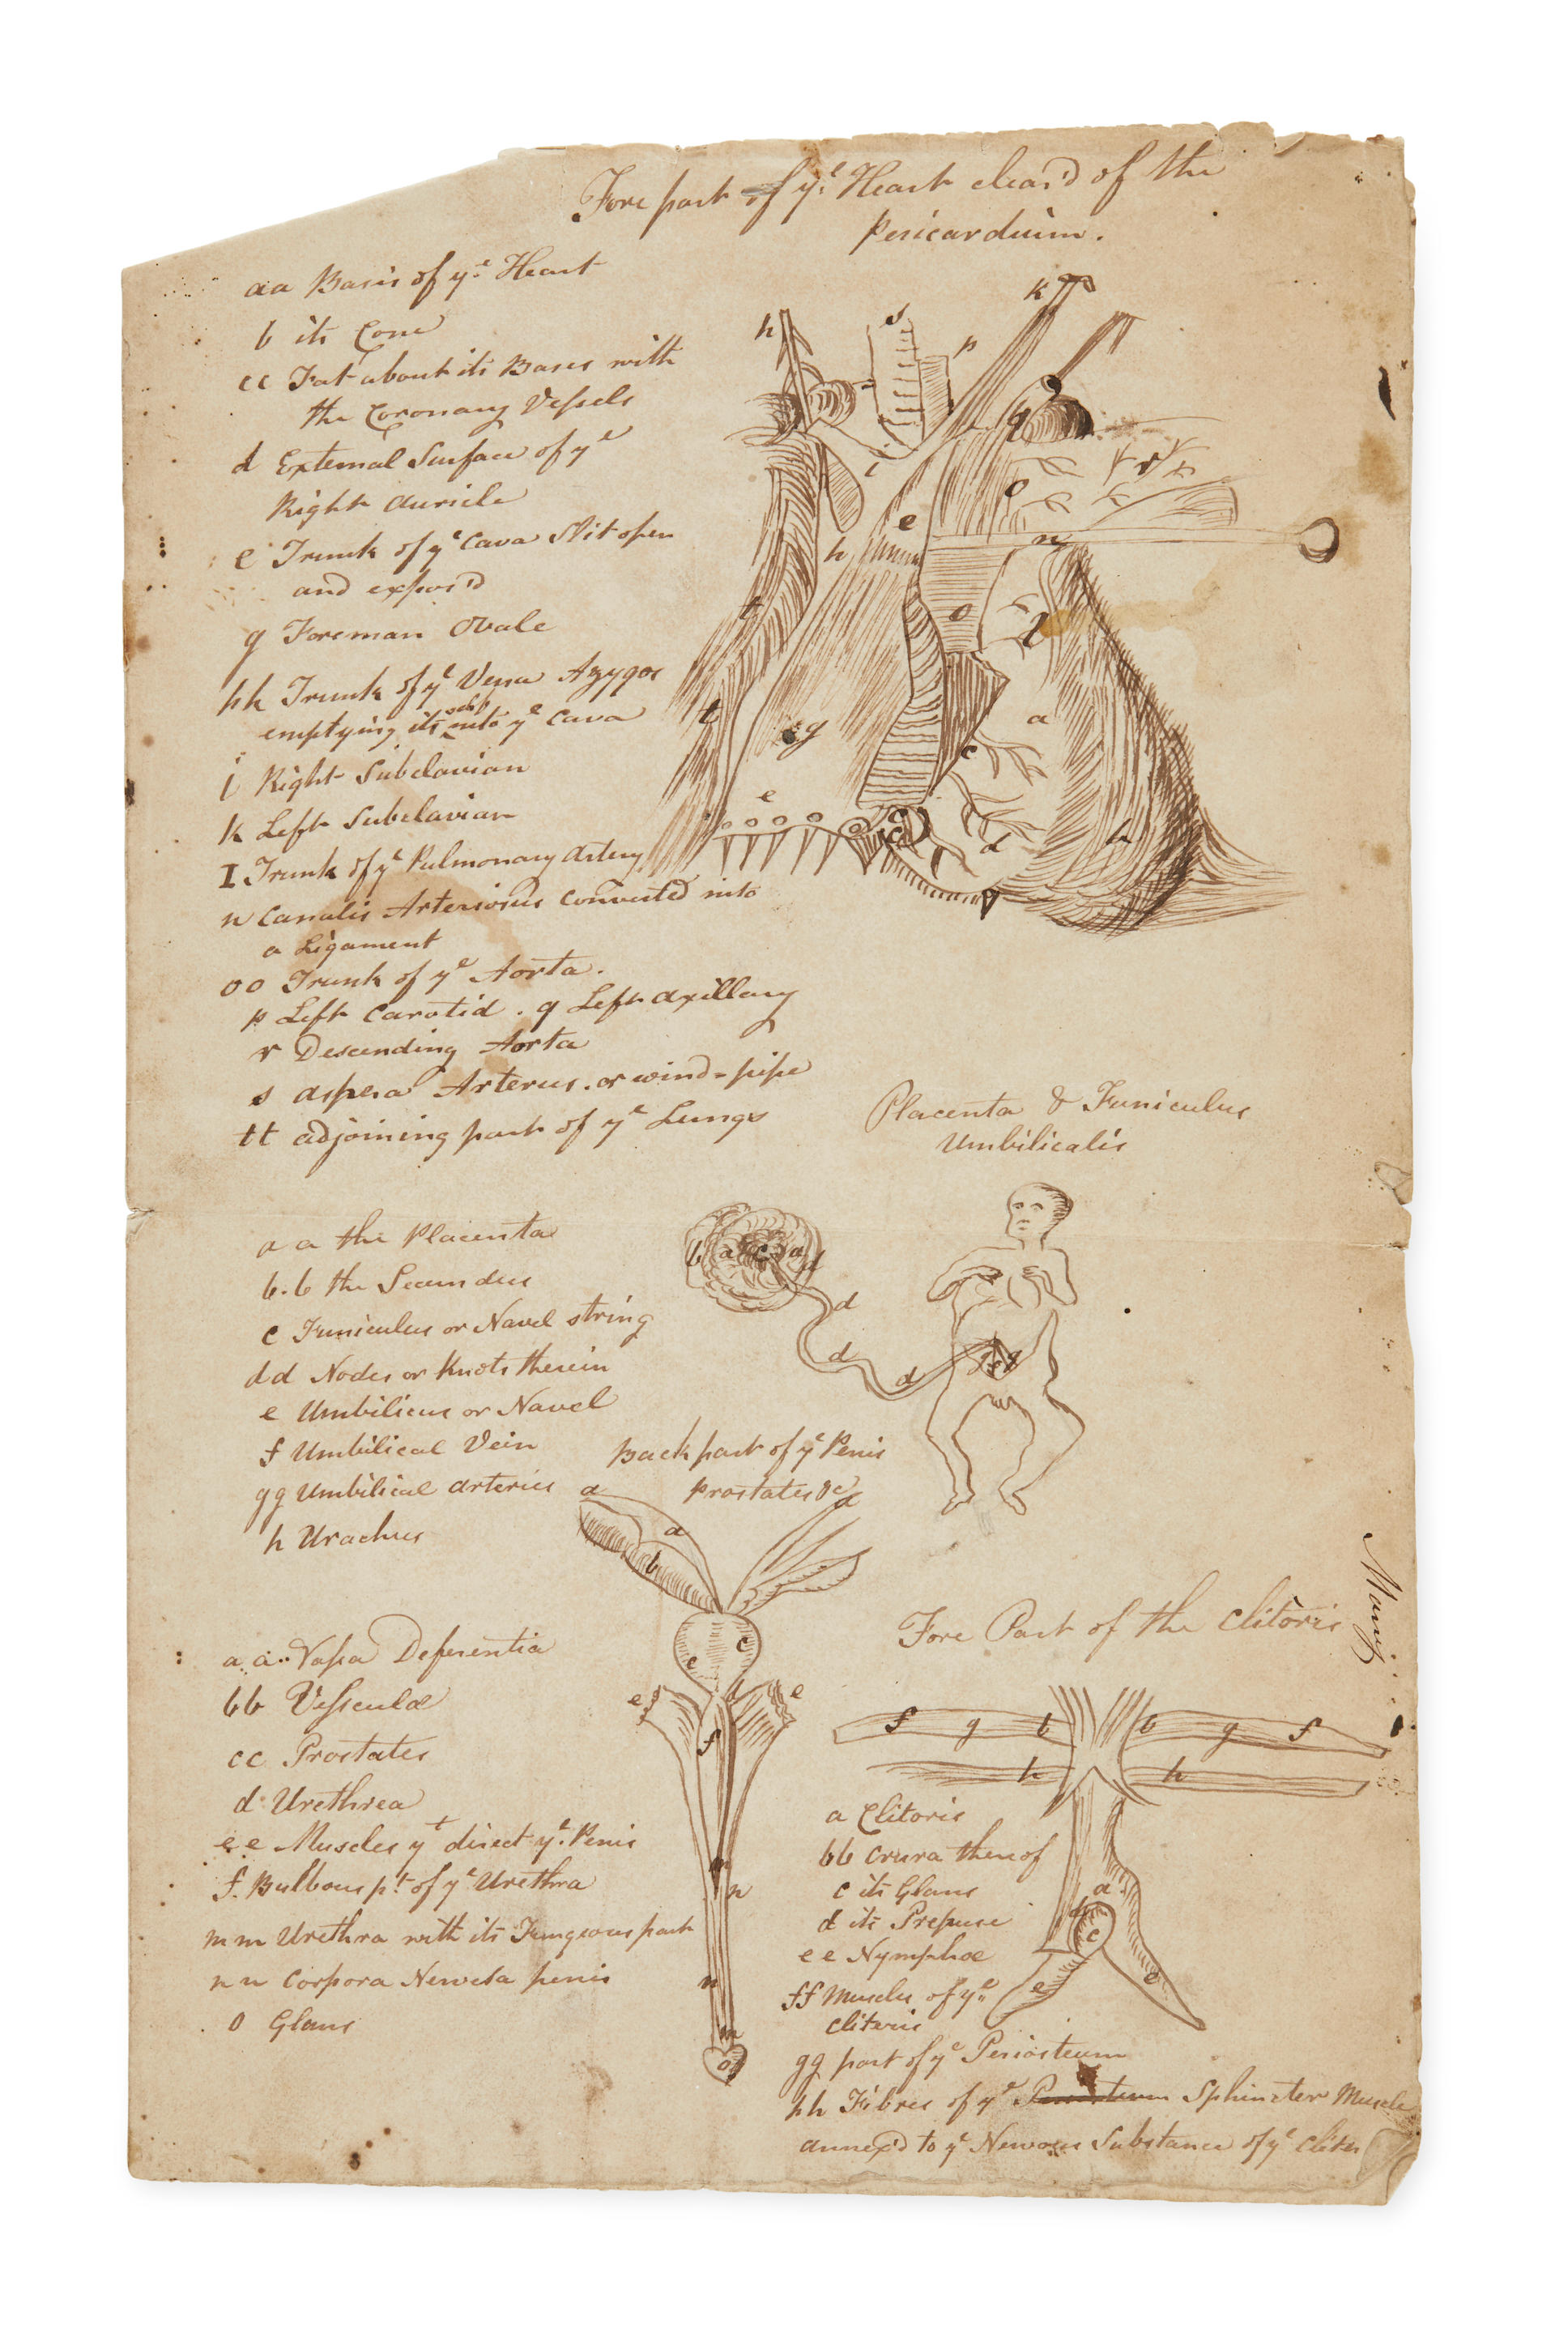 Fore part of yᵉ Heart clear'd of the
Pericarduim.
aa Basis of yᵉ Heart
b its Cone
cc Fat about its Bases with
the Coronary Vessels
d External Surface of yᵉ
Right auricle
e Trunk of yᵉ Cava Slit open
and expos'd
g Foreman Ovale
hh Trunk of yᵉ Vena Azygos
emptying its self into yᵉ Cava
i Right Subclavian
k Left Subclavian
I Trunk of yᵉ Pulmonary Artery
n Canalis Arteriosus converted into
a Ligament
oo Trunk of yᵉ Aorta.
p Left Carotid . q Left axillary
r Descending Aorta
s aspera Arterus. or wind=pipe
tt adjoining part of yᵉ Lungs
h s p k
q
i
e o
h n
t o l
t g a
c
e
c d b
Placenta & Funiculus
Umbilicalis
a a the Placenta
b.b the Secundus
c Funiculus or Navel string
dd Nodes or Knots therein
e Umbilicus or Navel
f Umbilical Vein
gg Umbilical arteries
h Urachus
b a c a d
d
d
d
Back part of yᵉ Penis
Prostates &c
a a
a
b
c
c
e e
f
m
n
n
m
o
a a Vasa Deferentia
bb Vesiculæ
cc Prostates
d Urethrea
e e Muscles yᵗ direct yᵉ Penis
f. Bulbous pᵗ of yᵉ Urethra
m m Urethra with its Fungeous part
n n Corpora Nervosa penis
o Glans
Fore Part of the Clitoris
f g b b g f
h h
a
d
c
e e
a Clitoris
bb crura thereof
c its Glans
d its Prepuse
e e Nymphæ
ff Muscles of yᵉ
cliteris
gg part of yᵉ Periosteum
hh Fibres of yᵉ Periosteum Sphincter Muscle
annex'd to yᵉ Nervous Substance of yᵉ Cliter